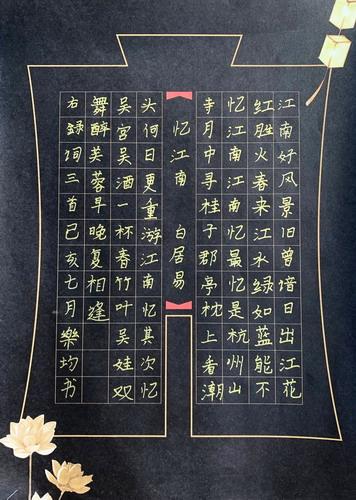 江南好风景旧曾谙日出江花
红胜火春来江水绿如蓝能不
忆江南江南忆最忆是杭州山
寺月中寻桂子郡亭枕上看潮
忆江南 白居易
头何日更重游江南忆其次忆
吴宫吴酒一杯春竹叶吴娃双
舞醉芙蓉早晚复相逢
右録词三首已亥七月樂均书